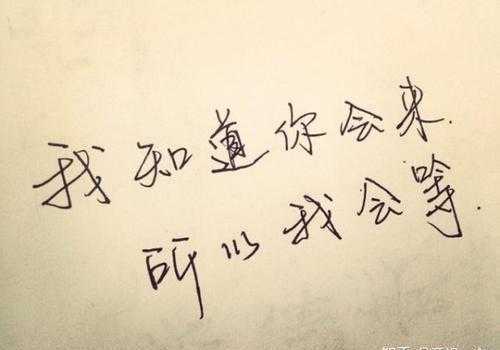 我知道你会来.
所以我会等.